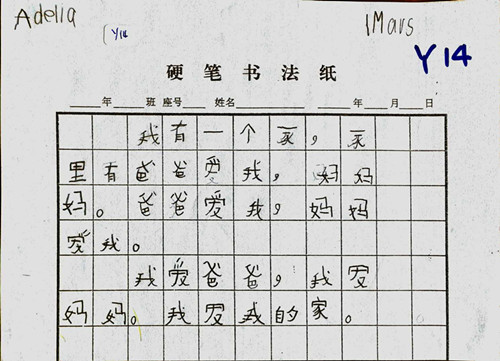 Adelia (Y14 1Mars
Y14
硬笔书法纸
____年____班 座号____ 姓名________ ____年____月____日
我有一个家，家
里有爸爸爱我，妈妈
妈。爸爸爱我，妈妈
爱我。
我爱爸爸，我爱
妈妈。我爱我的家。